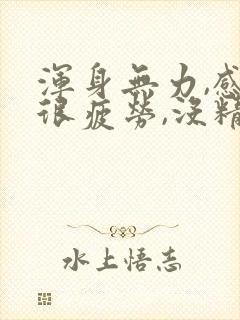 渾身無力,感
很疲勞,沒精
水上悟志